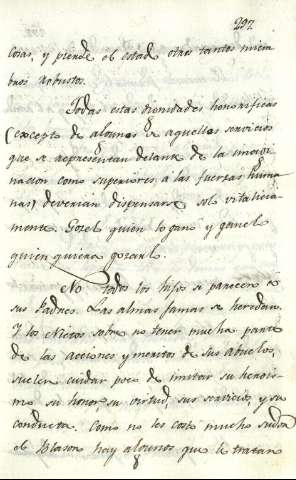 297.
cosas, y pierde el estado otros tantos miem
bros robustos.
Todas estas dignidades honorificas
(excepto de algunos de aquellos servicios
que se representan delante de la imagi
nacion como superiores, a las fuerzas huma
nas) deverian dispensarse solo vitalicia
mente. Gozelo quien lo ganó y ganelo
quien quiera gozarlo.
No todos los hijos se parecen à
sus Padres. Las almas jamas se heredan.
Y los Nietos sobre no tener mucha parte
de las acciones y meritos de sus abuelos,
suelen cuidar poco de imitar su herois-
mo su honor, su virtud, sus servicios, y su
conducta. Como no les costó mucho sudor
el Blason hay algunos que le tratan